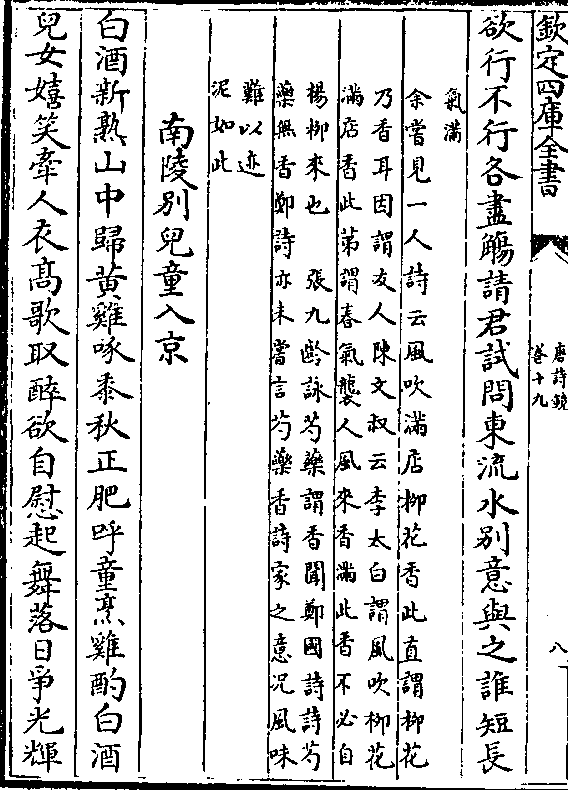 欽定四庫全書
唐詩鏡
卷十九
八
欲行不行各盡觴請君試問東流水別意與之誰短長
氣滿
余嘗見一人詩云風吹滿店柳花香此直謂柳花
乃香耳因謂友人陳文叔云李太白謂風吹柳花
滿店香此第謂春氣襲人風來香滿此香不必自
楊柳來也　張九齡詠芍藥謂香聞鄭國詩詩芍
藥無香鄭詩亦未嘗言芍藥香詩家之意況風味
難以迹
泥如此
南陵別兒童入京
白酒新熟山中歸黃雞啄黍秋正肥呼童烹雞酌白酒
兒女嬉笑牽人衣高歌取醉欲自慰起舞落日爭光輝